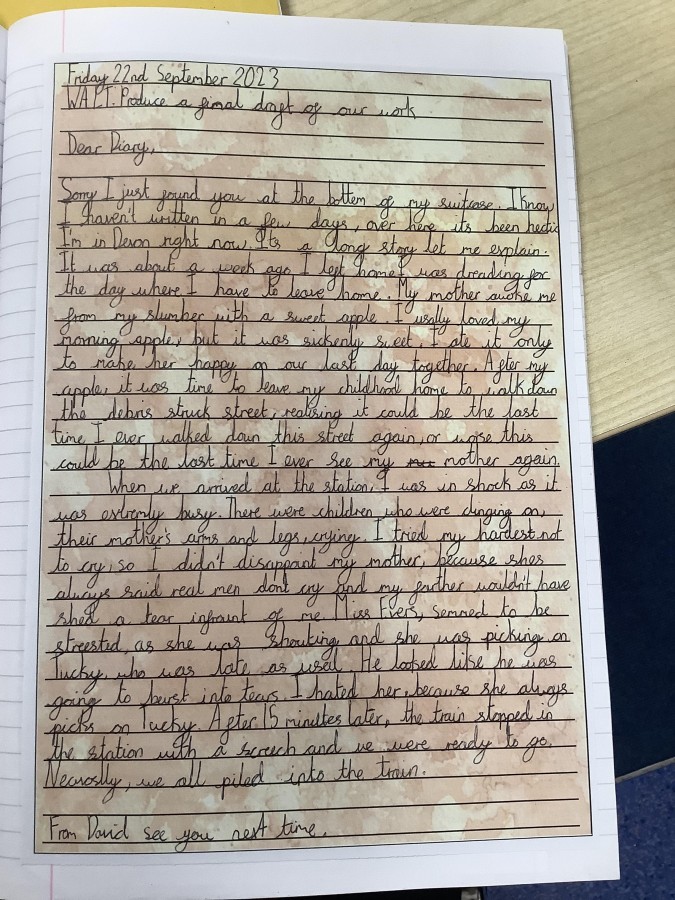 Friday 22nd September 2023
WALT: Produce a final draft of our work
Dear Diary,
Sorry I just found you at the bottem of my suitcase. I know
I haven't written in a few days, over here its been hectic
I'm in Devon right now. Its a long story let me explain.
It was about a week ago I left home I was dreading for
the day where I have to leave home. My mother awoke me
from my slumber with a sweet apple. I usally loved my
morning apple, but it was sickenly sweet, I ate it only
to make her happy on our last day together. After my
apple, it was time to leave my childhood home to walk down
the debris struck street, realising it could be the last
time I ever walked down this street again, or worse this
could be the last time I ever see my mother again.
When we arrived at the station, I was in shock as it
was extremly busy. There were children who were clinging on,
their mother's arms and legs, crying. I tried my hardest not
to cry, so I didn't disappoint my mother, because shes
always said real men dont cry and my farther wouldn't have
shed a tear infraunt of me. Miss Evers, semmed to be
streested, as she was shouting and she was picking on
Tucky, who was late, as usal. He looked like he was
going to berst into tears. I hated her, because she always
picks on Tucky. After 15 minuites later, the train stopped in
the station with a screech and we were ready to go.
Necuoslly, we all piled into the train.
From David see you next time.